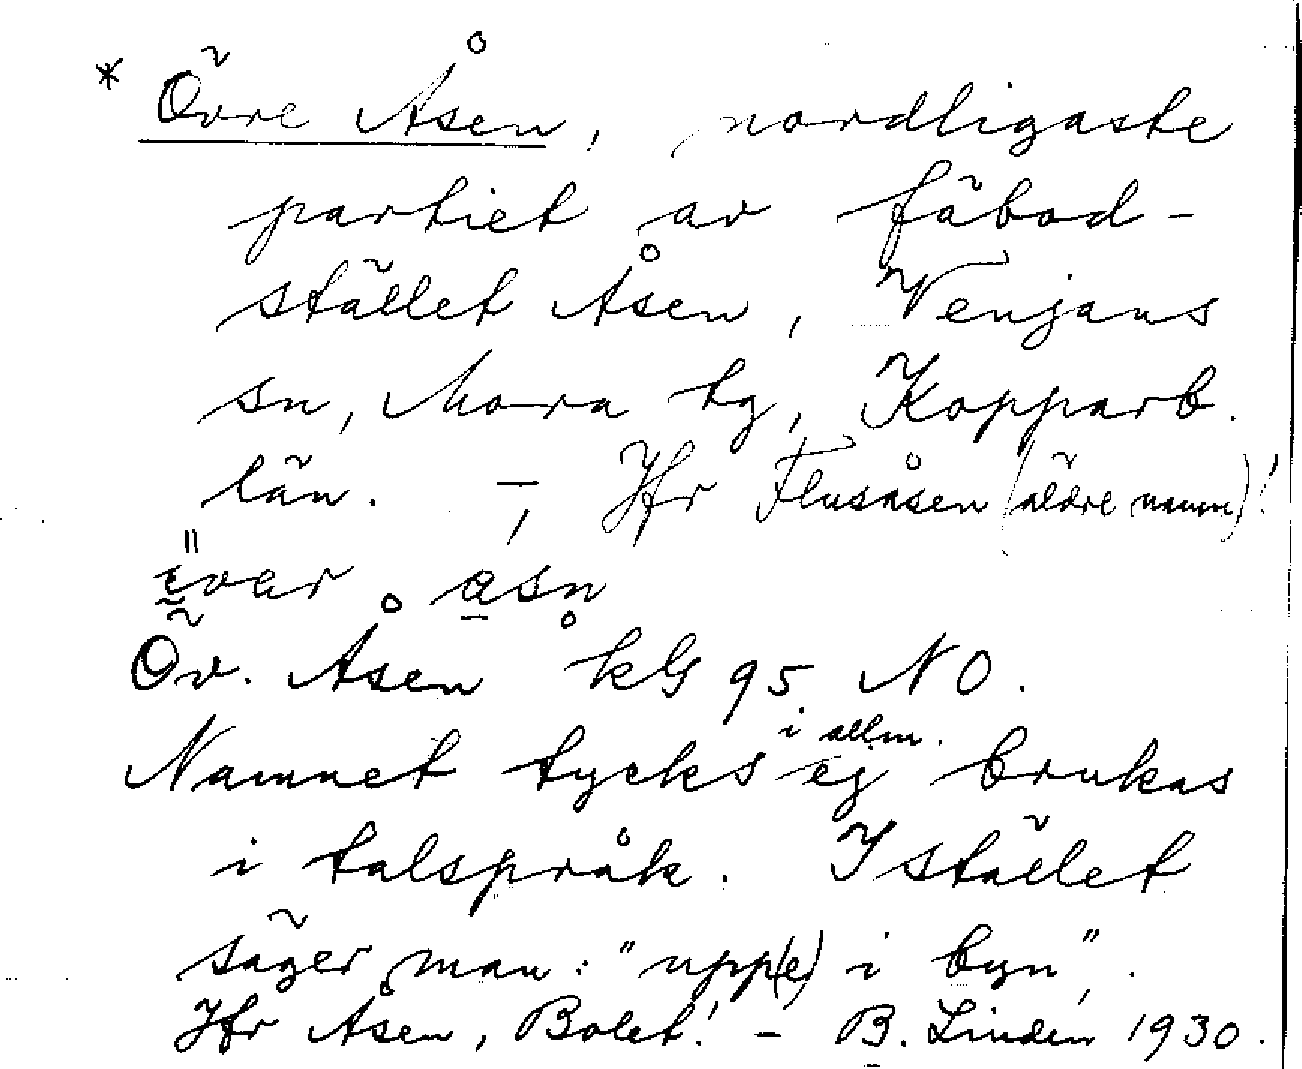 * Övre Åsen, nordligaste
partiet av fäbod-
stället Åsen, Venjans
sn, Mora tg, Kopparb.
län. –, Jfr Flusåsen (äldre namn)!
Öv. Åsen kbl 95 NO.
Namnet tycks i allm. ej brukas
i talspråk. I stället
säger man: "upp(e) i byn".
Jfr Åsen, Bolet! – B. Linden 1930.